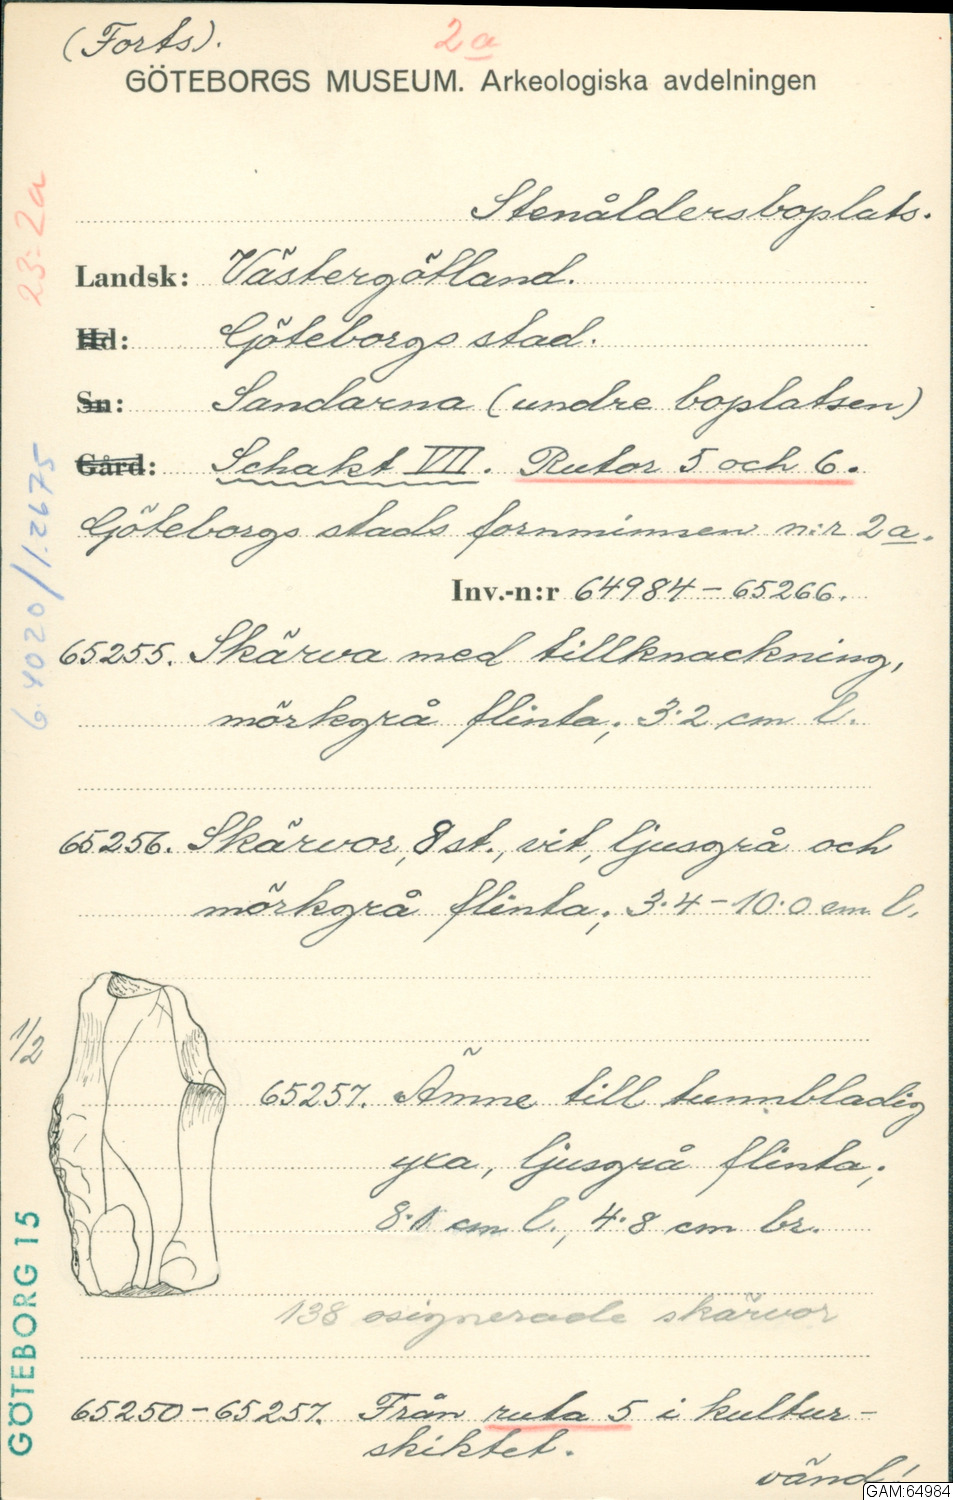 (Forts).
2a
GÖTEBORGS MUSEUM. Arkeologiska avdelningen
23:2a
Stenåldersboplats.
Landsk: Västergötland.
Hd: Göteborgs stad.
Sn: Sandarna (undre boplatsen)
Gård: Schakt VII. Rutor 5 och 6.
6.4020/1.2675
Göteborgs stads fornminnen n:r 2a.
Inv.-n:r 64984-65266.
65255. Skärva med tillknackning,
mörkgrå flinta; 3.2 cm l.
65256. Skärvor, 8 st., vit, ljusgrå och
mörkgrå flinta; 3.4-10.0 cm l.
1/2
65257. Ämne till tunnbladig
yxa, ljusgrå flinta;
8.1 cm l., 4.8 cm br.
GÖTEBORG 15
138 osignerade skärvor
65250-65257. Från ruta 5 i kultur-
skiktet.
vänd!
GAM:64984